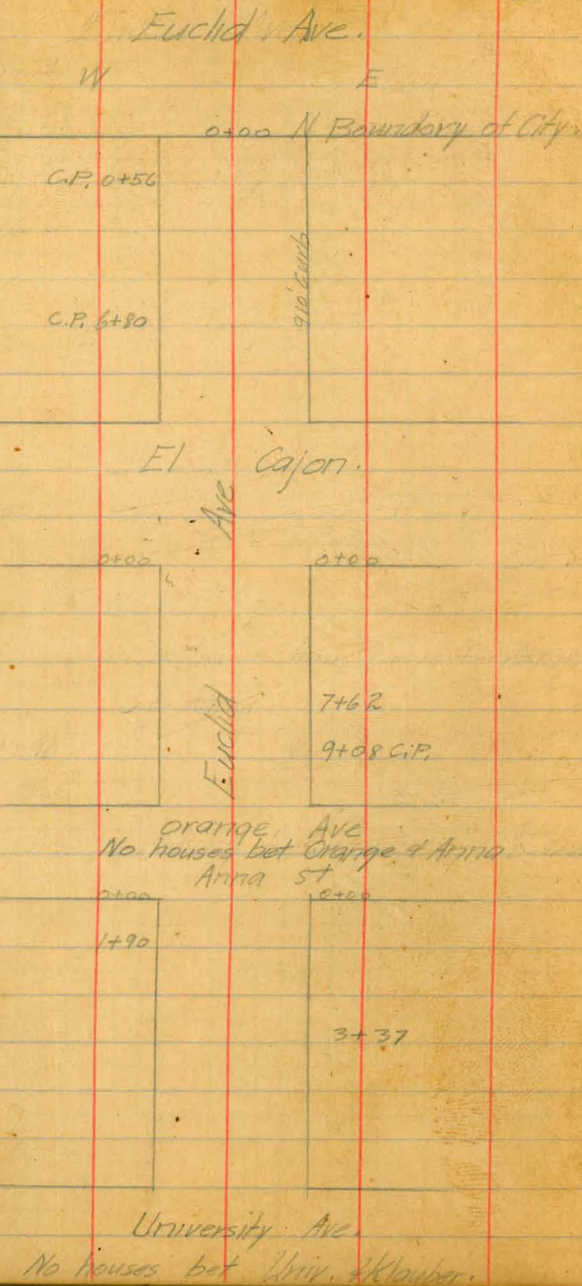 Euclid Ave.
W E
0+00 N Boundary of City.
C.P. 0+56
910' curb
C.P. 6+80
El Cajon.
Euclid Ave
0+00 0+00
7+62
9+08 C.P.
Orange Ave
No houses bet Orange & Anna
Anna St
0+00 0+00
1+90
3+37
University Ave.
No houses bet Univ. & Klauber.